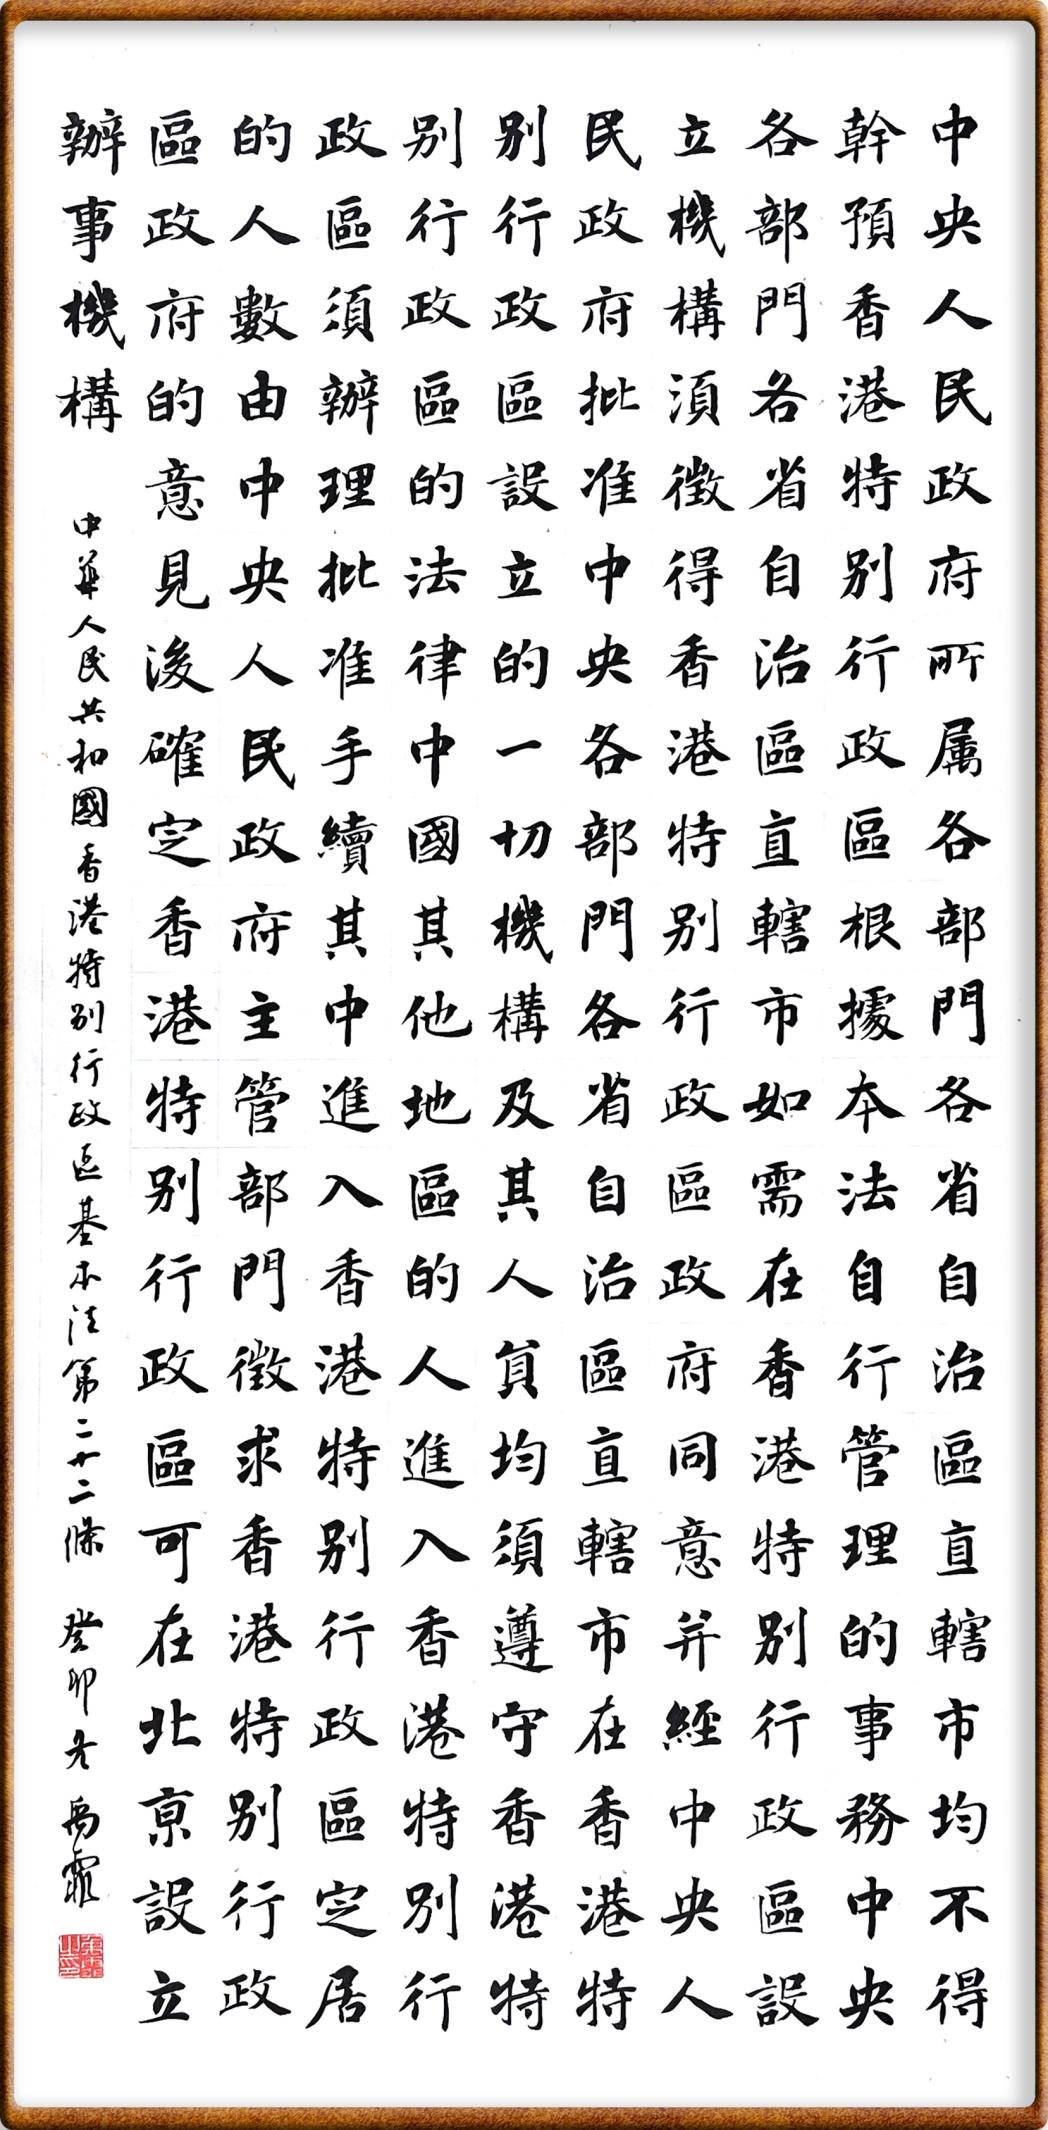 中央人民政府所属各部門各省自治區直轄市均不得
幹預香港特别行政區根據本法自行管理的事務中央
各部門各省自治區直轄市如需在香港特别行政區設
立機構須徵得香港特别行政區政府同意并經中央人
民政府批准中央各部門各省自治區直轄市在香港特
别行政區設立的一切機構及其人員均須遵守香港特
别行政區的法律中國其他地區的人進入香港特别行
政區須辦理批准手續其中進入香港特别行政區定居
的人數由中央人民政府主管部門徵求香港特别行政
區政府的意見後確定香港特别行政區可在北京設立
辦事機構
中華人民共和國香港特别行政区基本法第二十二條 癸卯冬 禹霏